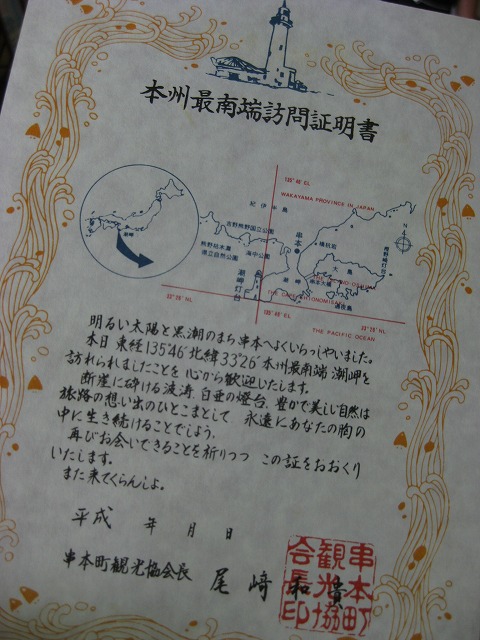 本州最南端訪問証明書
135°46' EL
WAKAYAMA PROVINCE IN JAPAN
紀伊半島
吉野熊野国立公園
熊野枯木灘
県立自然公園
海中公園
串本
橋杭岩
大島
樫野崎灯台
潮岬
潮岬灯台
N
33°26' NL
135°46' EL
33°26' NL
THE PACIFIC OCEAN
明るい太陽と黒潮のまち串本へよくいらっしゃいました。
本日 東経135°46′北緯33°26′本州最南端 潮岬を
訪れられましたことを 心から歓迎いたします。
断崖に砕ける波涛、白亜の燈台、豊かで美しい自然は
旅路の想い出のひとこまとして 永遠にあなたの胸の
中に生き続けることでしょう。
再びお会いできることを祈りつつ この証をおおくり
いたします。
また来てくらんしよ。
平成 年 月 日
串本町観光協会長 尾﨑和貴
串本町
観光協
会長印